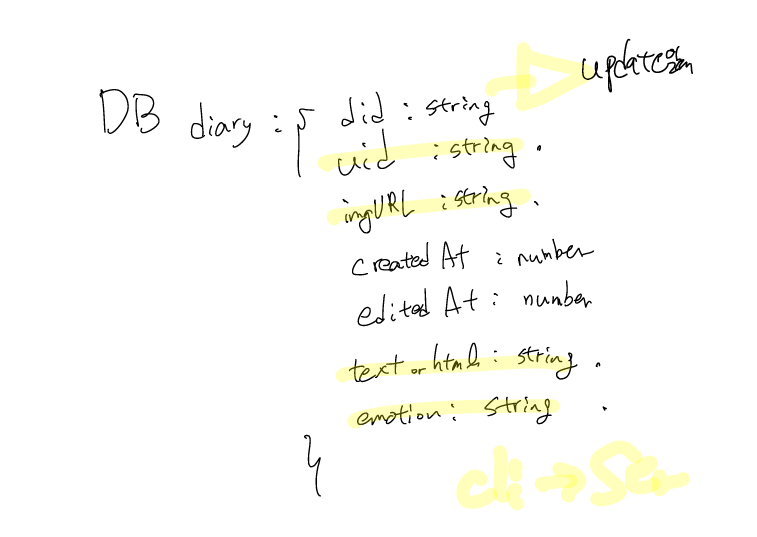 update
DB diary : { did : string
uid : string .
imgURL : string .
created At : number
edited At : number
text or html : string .
emotion : string .
}
cli → Ser